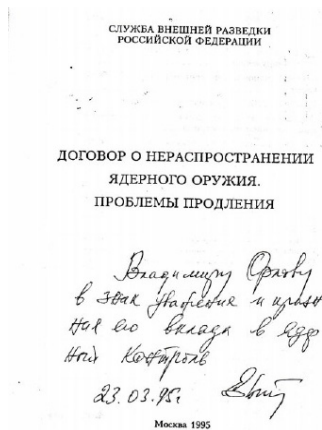 СЛУЖБА ВНЕШНЕЙ РАЗВЕДКИ
РОССИЙСКОЙ ФЕДЕРАЦИИ
ДОГОВОР О НЕРАСПРОСТРАНЕНИИ
ЯДЕРНОГО ОРУЖИЯ.
ПРОБЛЕМЫ ПРОДЛЕНИЯ
Владимиру Орлову
в знак уважения и призна
ния его вклада в ядер
ный Контроль
23.03.95г.
Москва 1995